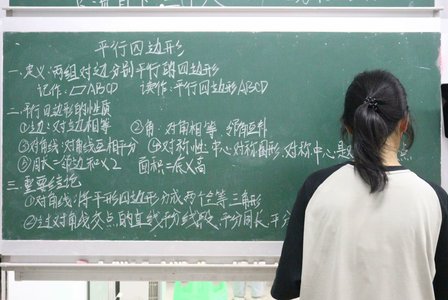 平行四边形
一.定义:两组对边分别平行的四边形
记作:▱ABCD 读作:平行四边形ABCD
二.平行四边形的性质
①边:对边相等 ②角:对角相等,邻角互补
③对角线:对角线互相平分 ④对称性:中心对称图形,对称中心是 点
⑤周长=邻边和×2 面积=底×高
三.重要结论
①对角线:将平行四边形分成两个全等三角形
②过对角线交点的直线平分线段,平分周长,平分